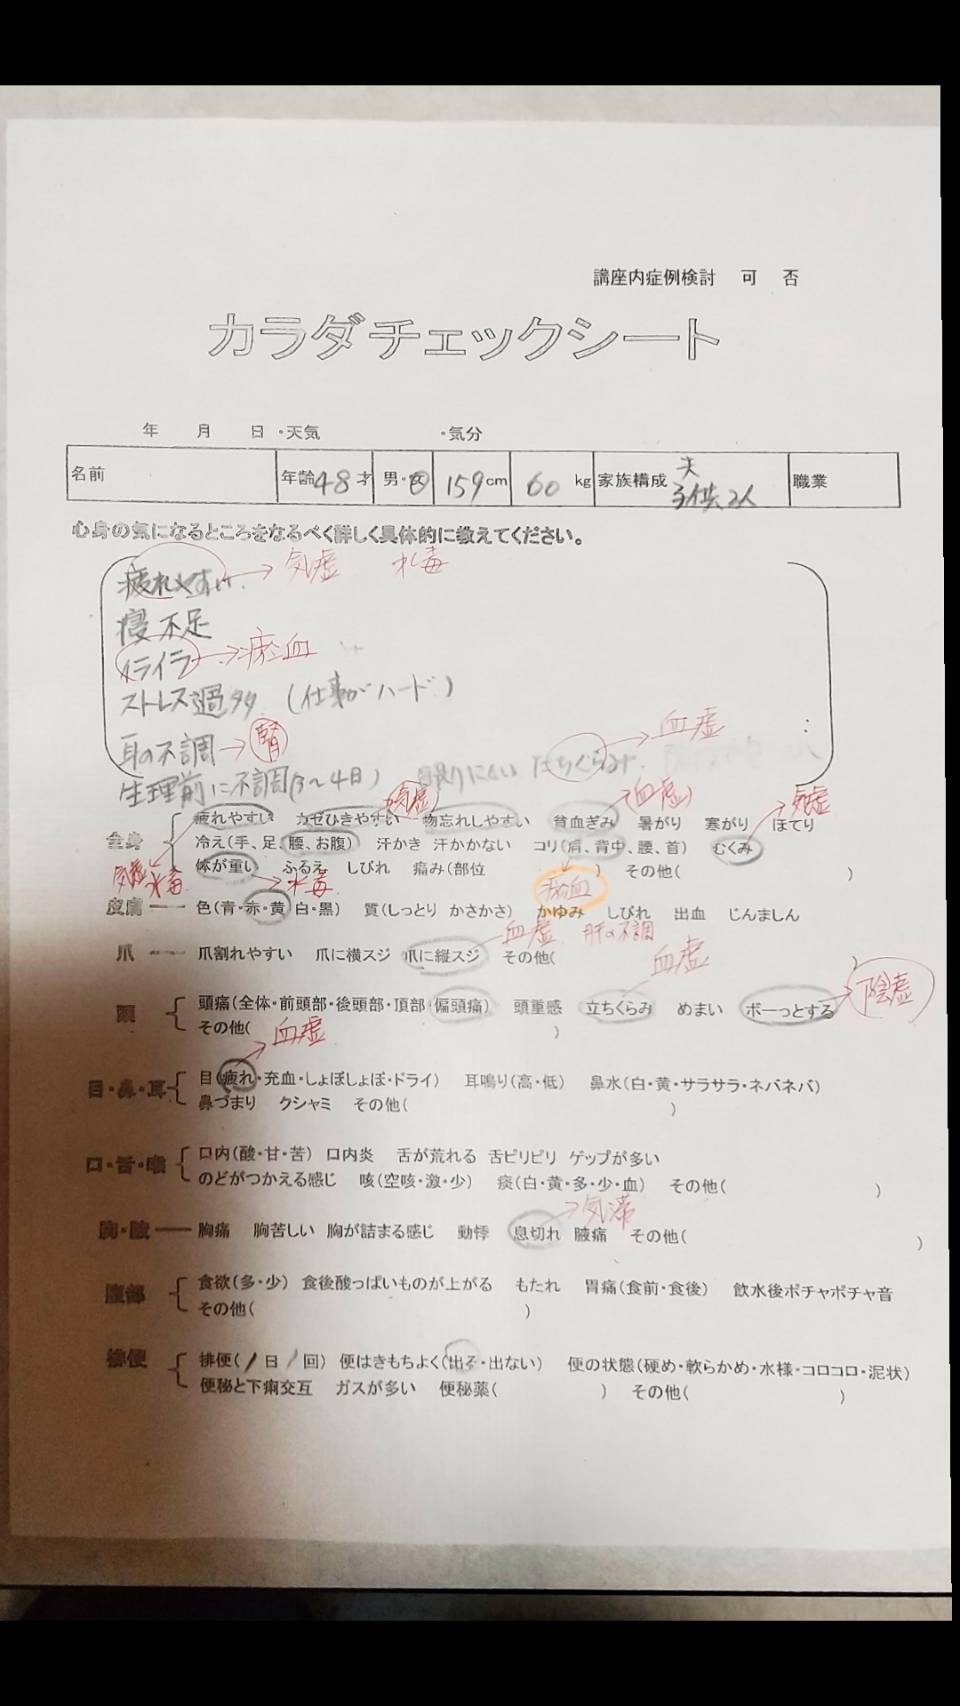 講座内症例検討 可 否
カラダチェックシート
年 月 日 ・天気 ・気分
名前 年齢48才 男・女 159cm 60kg 家族構成 夫 子供2人 職業
心身の気になるところをなるべく詳しく具体的に教えてください。
疲れやすい → 気虚 水毒
寝不足
イライラ → 瘀血
ストレス過多 (仕事がハード)
耳の不調 → 腎 血虚
生理前に不調(3〜4日) 眠りにくい 立ちくらみ
(気虚) (血虚) 気虚
全身 疲れやすい カゼひきやすい 物忘れしやすい 貧血ぎみ 暑がり 寒がり ほてり
冷え(手、足、腰、お腹) 汗かき 汗かかない コリ(肩、背中、腰、首) むくみ
体が重い ふるえ しびれ 痛み(部位 ) その他( )
気虚 水毒 水毒 瘀血
皮膚 色(青・赤・黄・白・黒) 質(しっとり かさかさ) かゆみ しびれ 出血 じんましん
血虚 肝の不調
爪 爪割れやすい 爪に横スジ 爪に縦スジ その他( )
血虚 陰虚
頭 頭痛(全体・前頭部・後頭部・頂部・偏頭痛) 頭重感 立ちくらみ めまい ボーっとする
その他( )
血虚
目・鼻・耳 目(疲れ・充血・しょぼしょぼ・ドライ) 耳鳴り(高・低) 鼻水(白・黄・サラサラ・ネバネバ)
鼻づまり クシャミ その他( )
口・舌・喉 口内(酸・甘・苦) 口内炎 舌が荒れる 舌ピリピリ ゲップが多い
のどがつかえる感じ 咳(空咳・激・少) 痰(白・黄・多・少・血) その他( )
気滞
胸・腋 胸痛 胸苦しい 胸が詰まる感じ 動悸 息切れ 腋痛 その他( )
腹部 食欲(多・少) 食後酸っぱいものが上がる もたれ 胃痛(食前・食後) 飲水後ポチャポチャ音
その他( )
排便 排便(1日1回) 便はきもちよく(出る・出ない) 便の状態(硬め・軟らかめ・水様・コロコロ・泥状)
便秘と下痢交互 ガスが多い 便秘薬( ) その他( )